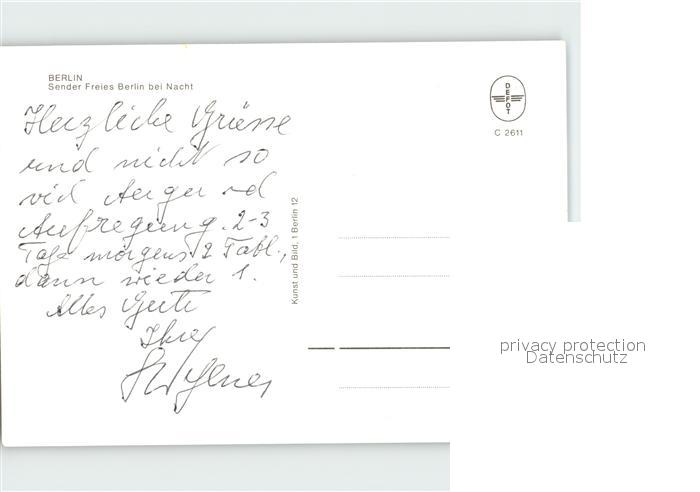 BERLIN
Sender Freies Berlin bei Nacht
Herzliche Grüsse
und nicht so
viel Aerger und
Aufregung. 2-3
Tage morgens 2 Tabl.,
dann wieder 1.
Alles Gute
Ihre
Kunst und Bild, 1 Berlin 12
DEFOT
C 2611
privacy protection
Datenschutz